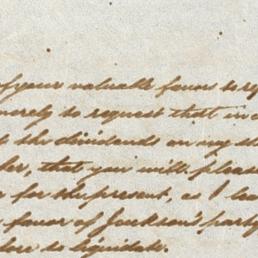 of your valuable favors to
merely to request that in c
the dividends on my st
that you will please
for the present, as I
favor of Jackson's party
to liquidate.